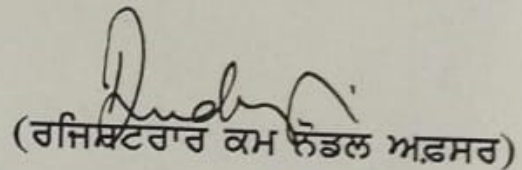 (ਰਜਿਸ਼ਟਰਾਰ ਕਮ ਨੋਡਲ ਅਫ਼ਸਰ)